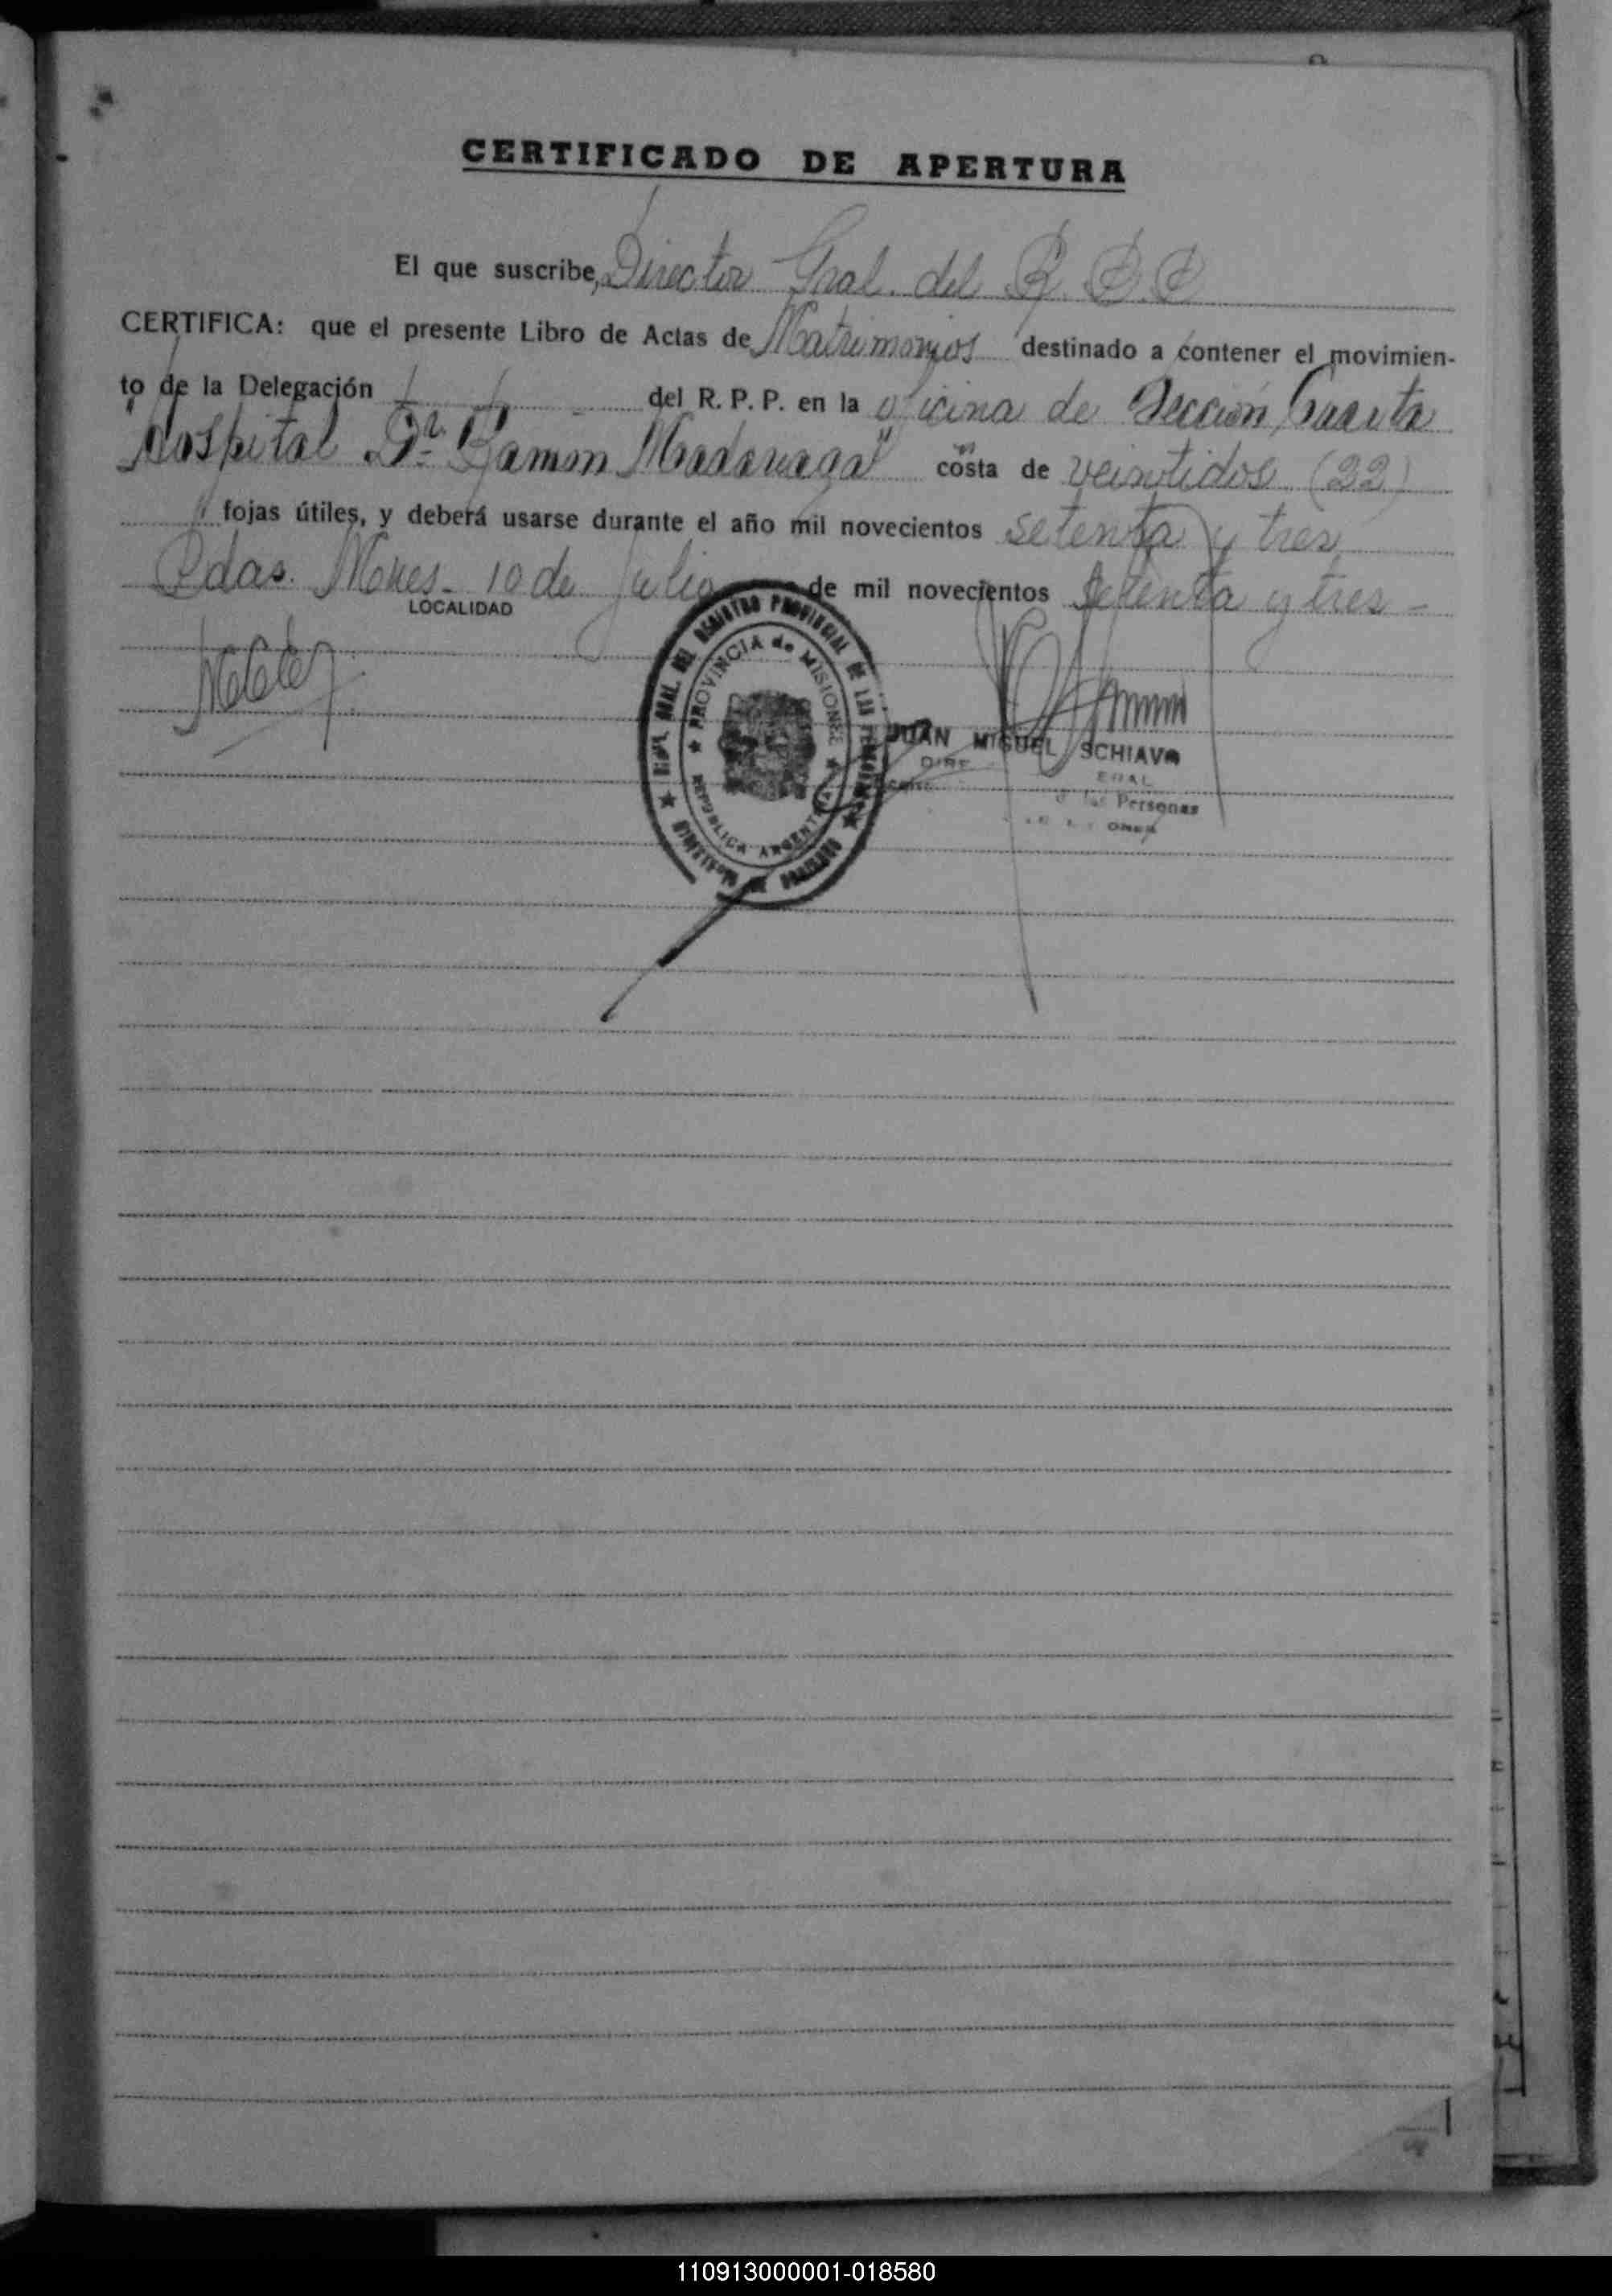 CERTIFICADO DE APERTURA
El que suscribe, Director Gral. del R. P. P.
CERTIFICA: que el presente Libro de Actas de Matrimonios destinado a contener el movimien-
to de la Delegación del R. P. P. en la oficina de Sección Cuarta
"Hospital Dr. Ramon Madariaga" costa de veintidos (22)
fojas útiles, y deberá usarse durante el año mil novecientos setenta y tres
Pdas. Mnes. 10 de Julio de mil novecientos setenta y tres
LOCALIDAD
GRAL. DEL REGISTRO PROVINCIAL DE LAS PERSONAS
PROVINCIA de MISIONES
REPUBLICA ARGENTINA
MINISTERIO DE GOBIERNO
JUAN MIGUEL SCHIAVO
Personas
1
110913000001-018580